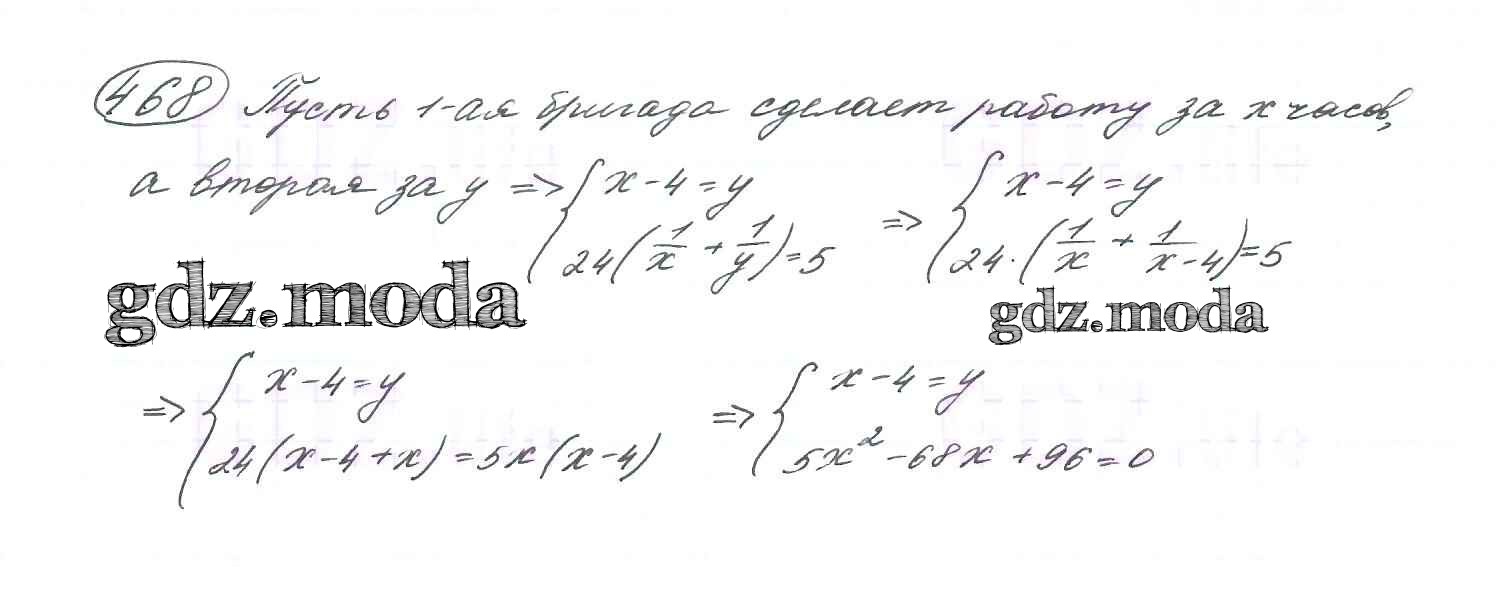 468 Пусть 1-ая бригада сделает работу за x часов,
а вторая за y => { x-4=y => { x-4=y
24(1/x + 1/y)=5 24·(1/x + 1/x-4)=5
gdz.moda gdz.moda
=> { x-4=y => { x-4=y
24(x-4+x)=5x(x-4) 5x²-68x+96=0